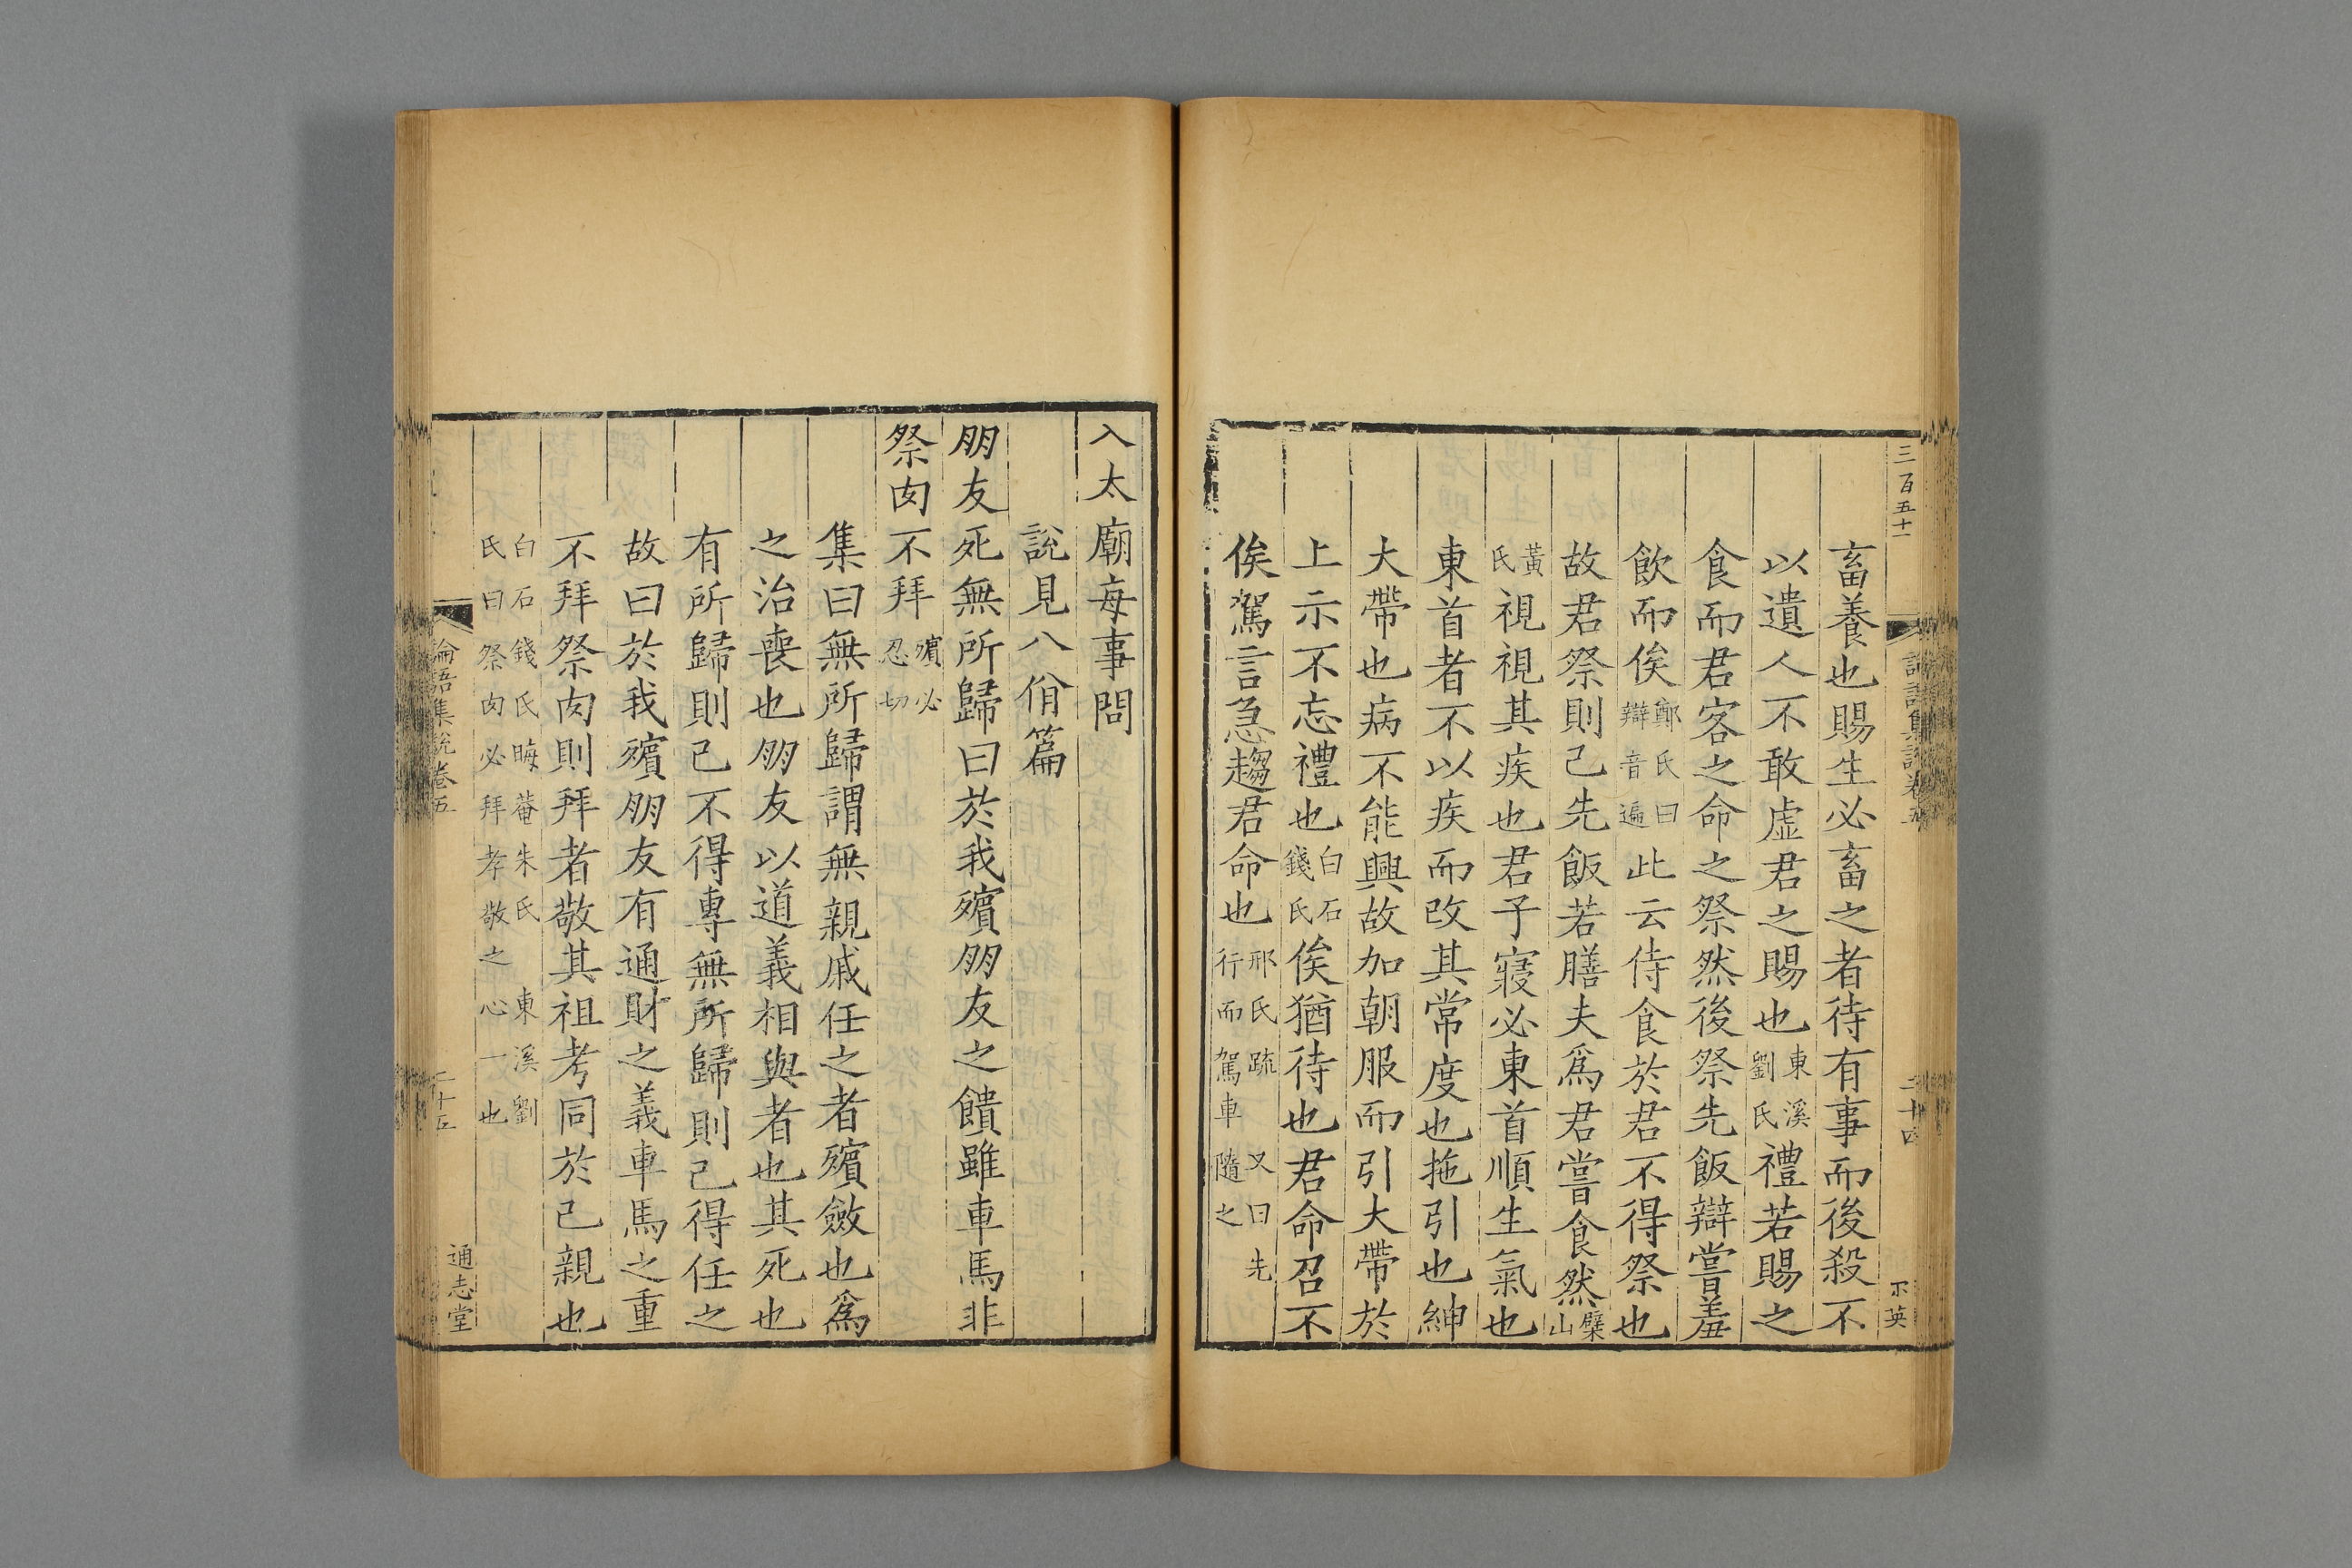 三百五十一
二十四
畜養也賜生必畜之者待有事而後殺不
以遺人不敢虛君之賜也東溪劉氏禮若賜之
食而君客之命之祭然後祭先飯辯嘗羞
飲而俟鄭氏曰辯音遍此云侍食於君不得祭也
故君祭則己先飯若膳夫爲君嘗食然檗山
黃氏視視其疾也君子寢必東首順生氣也
東首者不以疾而改其常度也拖引也紳
大帶也病不能興故加朝服而引大帶於
上示不忘禮也白石錢氏俟猶待也君命召不
俟駕言急趨君命也邢氏疏又曰先行而駕車隨之
入太廟每事問
說見八佾篇
朋友死無所歸曰於我殯朋友之饋雖車馬非
祭肉不拜殯必忍切
集曰無所歸謂無親戚任之者殯斂也爲
之治喪也朋友以道義相與者也其死也
有所歸則己不得專無所歸則己得任之
故曰於我殯朋友有通財之義車馬之重
不拜祭肉則拜者敬其祖考同於己親也
白石錢氏晦菴朱氏東溪劉氏曰祭肉必拜孝敬之心一也
論語集說卷五
二十五
通志堂